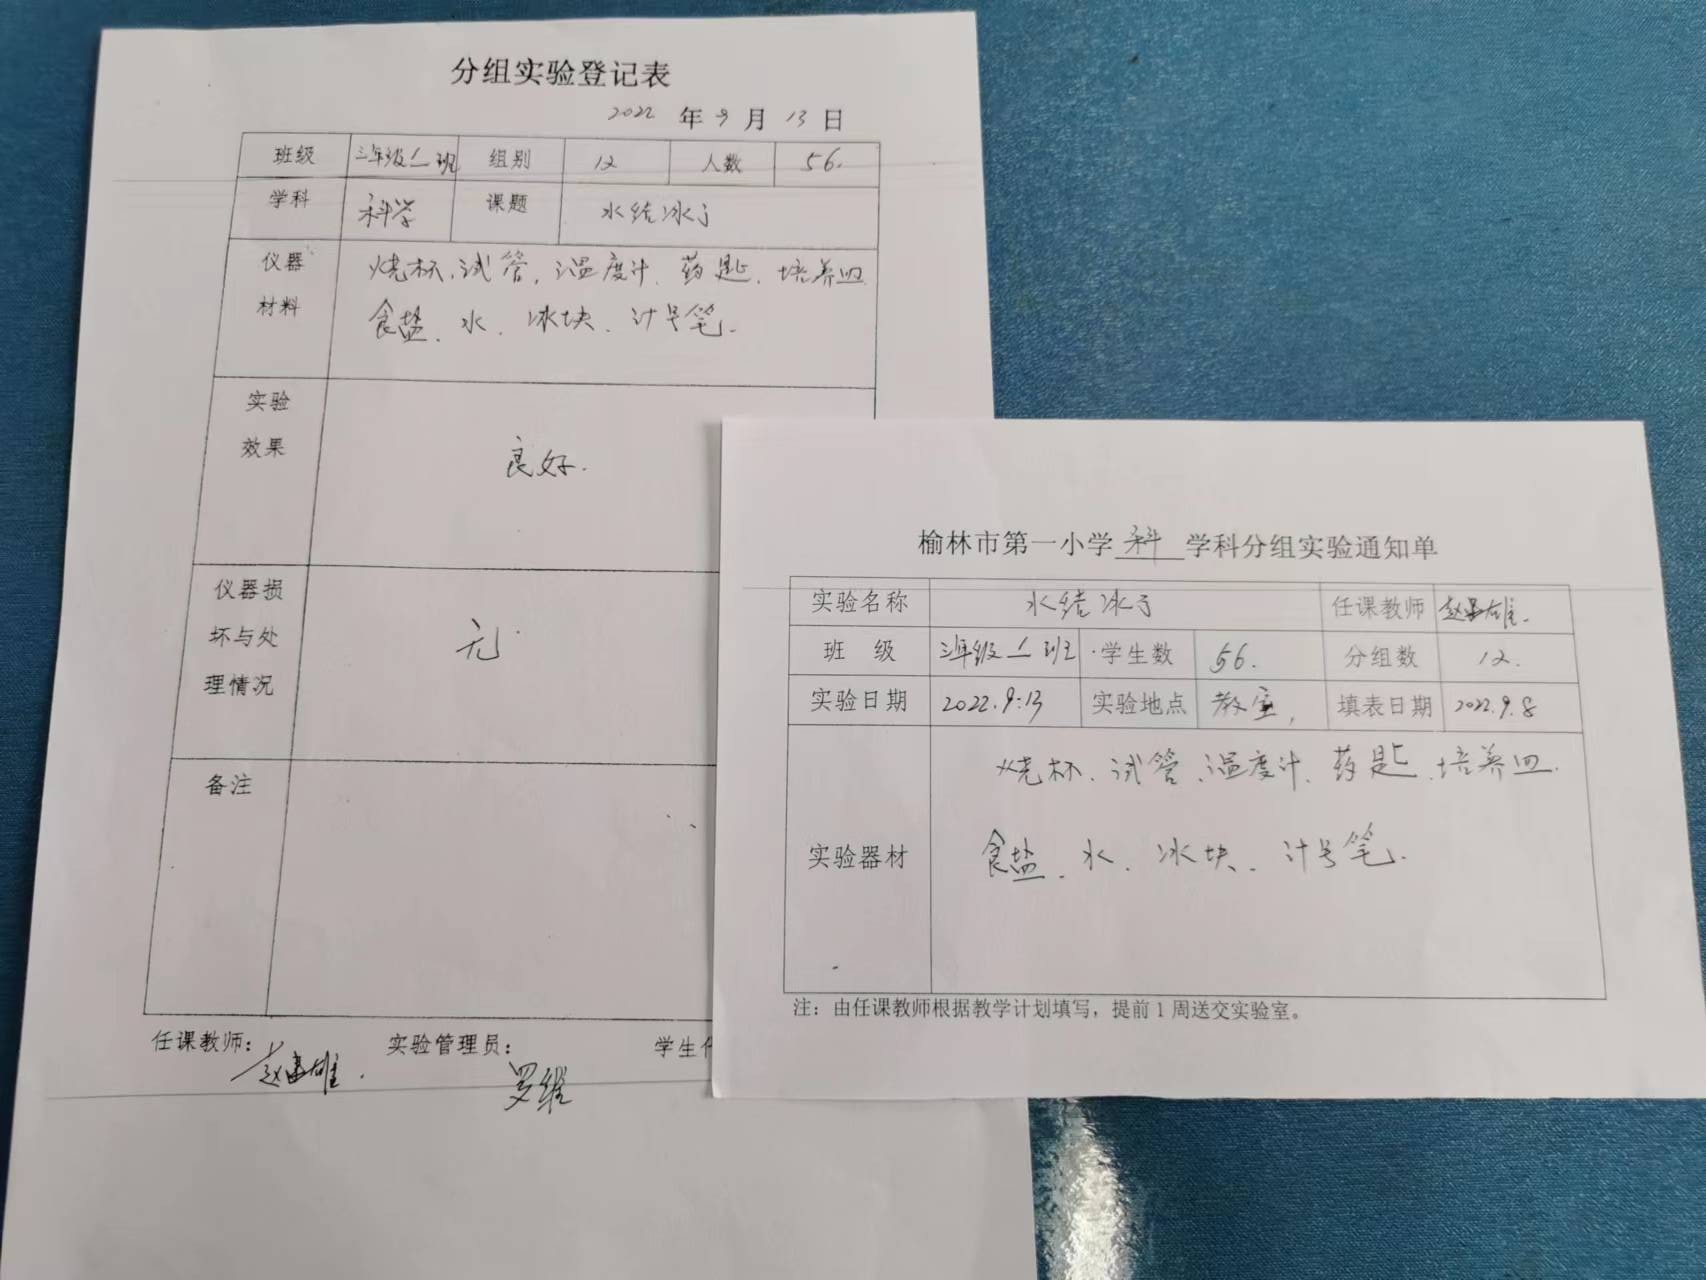 分组实验登记表
2022 年 9 月 13 日
班级 三年级1班 组别 12 人数 56.
学科 科学 课题 水结冰了
仪器材料 烧杯、试管、温度计、药匙、培养皿
食盐、水、冰块、计号笔.
实验效果 良好.
仪器损坏与处理情况 无
备注
任课教师: 实验管理员: 罗维 学生
榆林市第一小学 科 学科分组实验通知单
实验名称 水结冰了 任课教师
班 级 三年级1班 学生数 56. 分组数 12.
实验日期 2022.9.13 实验地点 教室, 填表日期 2022.9.8
实验器材 烧杯、试管、温度计、药匙、培养皿.
食盐、水、冰块、计号笔.
注：由任课教师根据教学计划填写，提前1周送交实验室。